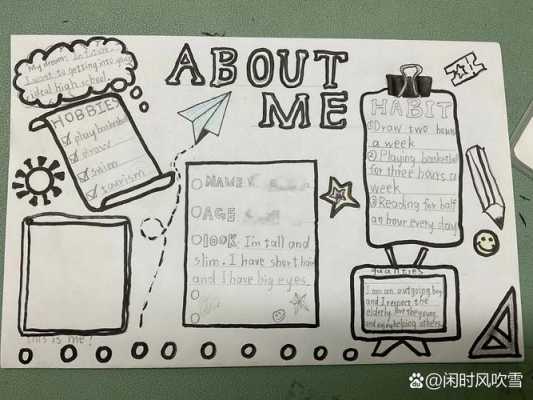 ABOUT
ME
My dream: In future,
I want to getting into you
ideal high school.
HOBBIES
play basketball
draw
swim
tourism
NAME
AGE
look: I'm tall and
slim. I have short hair
and I have big eyes.
HABIT
①Draw two hours
a week
②Playing basketball
for three hours a
week
③Reading for half
an hour every day
qualities
I am an outgoing boy
and I respect the
elderly, love the young
and enjoy helping others
this is me!
@闲时风吹雪